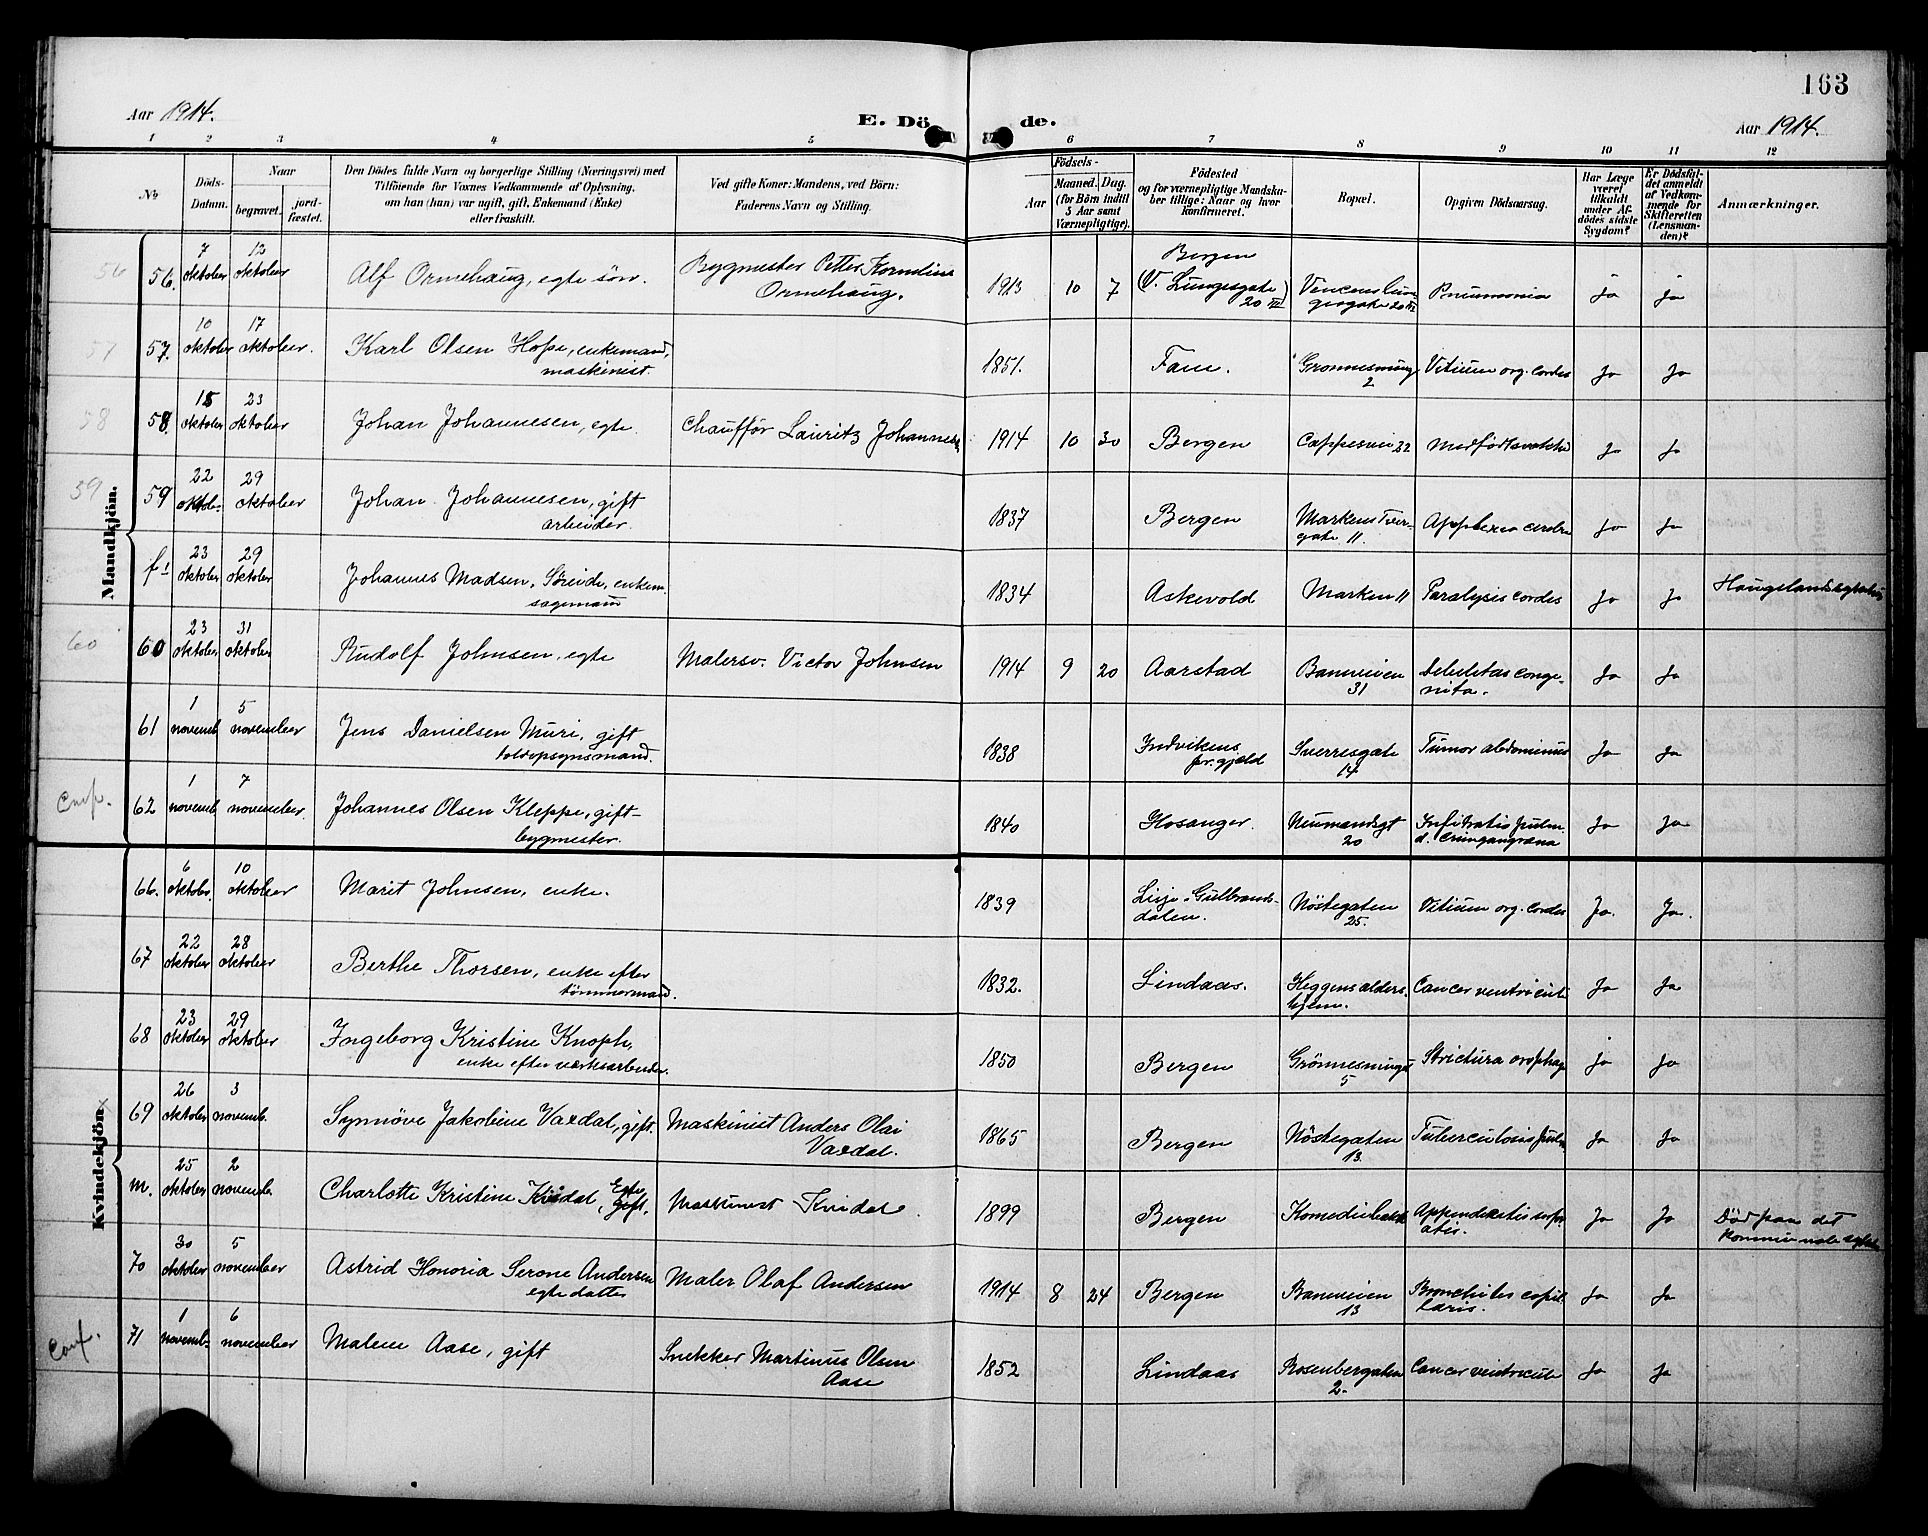 163
Aar 1914. E. Dö de. Aar 1914.
1 2 3 4 5 6 7 8 9 10 11 12
No
Döds-Datum.
Naar
begravet.
jord-fæstet.
Den Dödes fulde Navn og borgerlige Stilling (Næringsvei) med
Tilföiende for Voxnes Vedkommende af Oplysning,
om han (hun) var ugift, gift, Enkemand (Enke)
eller fraskilt.
Ved gifte Koner: Mandens, ved Börn:
Faderens Navn og Stilling.
Födsels-
Aar Maaned. Dag.
(for Börn indtil
5 Aar samt
Værnepligtige).
Födested
og for værnepligtige Mandska-
ber tillige: Naar og hvor
konfirmeret.
Bopæl.
Opgiven Dödsaarsag.
Har Læge
været
tilkaldt
under Af-
dödes sidste
Sygdom?
Er Dödsfal-
det anmeldt
af Vedkom-
mende for
Skifteretten
(Lensman-
den)?
Anmærkninger.
Mandkjön.
56 56. 7 oktober 12 oktober Alf Ormehaug, egte sön. Bygmester Petter Kornelius Ormehaug. 1913 10 7 Bergen (V. Lungesgate 20 III) 20 III Pneumonia ja ja
57 57. 10 oktober 17 oktober. Karl Olsen Hope, enkemand, maskinist. 1851. Fane. 2 Vitium org. cordis Ja Ja
58 58. 15 oktober 23 oktober Johan Johannesen, egte. Chauffør Lauritz Johannesen 1914 10 30 Bergen Cappesvei 22 Ja Ja
59 59 22 oktober 29 oktober Johan Johannesen, gift arbeider. 1837 Bergen Markens Tver-gate 11. Ja Ja
f 1 23 oktober 29 oktober Johannes Madsen, enkem. sagemand 1834 Askevold Marken 11 Paralysis cordis Ja Ja
60 60 23 oktober 31 oktober Rudolf Johnsen, egte Malersv. Victor Johnsen 1914 9 20 Aarstad Banneveien 31 Debilitas conge-nita. Ja Ja
61 1 novemb. 5 november Jens Danielsen Muri, gift toldopsynsmand. 1838 Indvikens pr.gjeld Sverresgate 14 Tumor abdominus Ja Ja
62 1 novemb. 7 november. Johannes Olsen Kleppe, gift bygmester. 1840 Hosanger. Neumandsgt 20 Ja Ja
Kvindekjön
66. 6 oktobr. 10 oktober Marit Johnsen, enke. 1839 Lesje i Gulbrands-dalen. Nöstegaten 25. Vitium org. cordis Ja. Ja.
67 22 oktober 28 oktober Berthe Thorsen, enke efter tömmermand. 1832. Lindaas. Heggens alders-hjem. Cancer ventriculi Ja Ja
68 23 oktober 29 oktober Ingeborg Kristine Knoph, enke efter værksarbeider. 1850 Bergen 5 Strictura oesophag. Ja Ja
69 26 oktober 3 novemb. Synnöve Jakobine Vaxdal, gift. Maskinist Anders Olai Vaxdal. 1865 Bergen Nöstegaten 13. Tuberculosis pulm. Ja Ja
m. 25 oktober 2 novemb. Charlotte Kristine Kvidal, Egte gift. Maskinist Kvidal. 1899 Bergen Ja Ja Död paa det kommunale
70 30 oktober 5 november Astrid Honoria Serone Andersen egte datter Maler Olaf Andersen 1914 8 24 Bergen Banneveien 13 Bronchites capil-laris. Ja Ja
Conf. 71 1 novemb. 6 november Malene Aase, gift Snekker Martinus Olsen Aase 1852 Lindaas Rosenbergaten 2. Cancer ventriculi Ja Ja